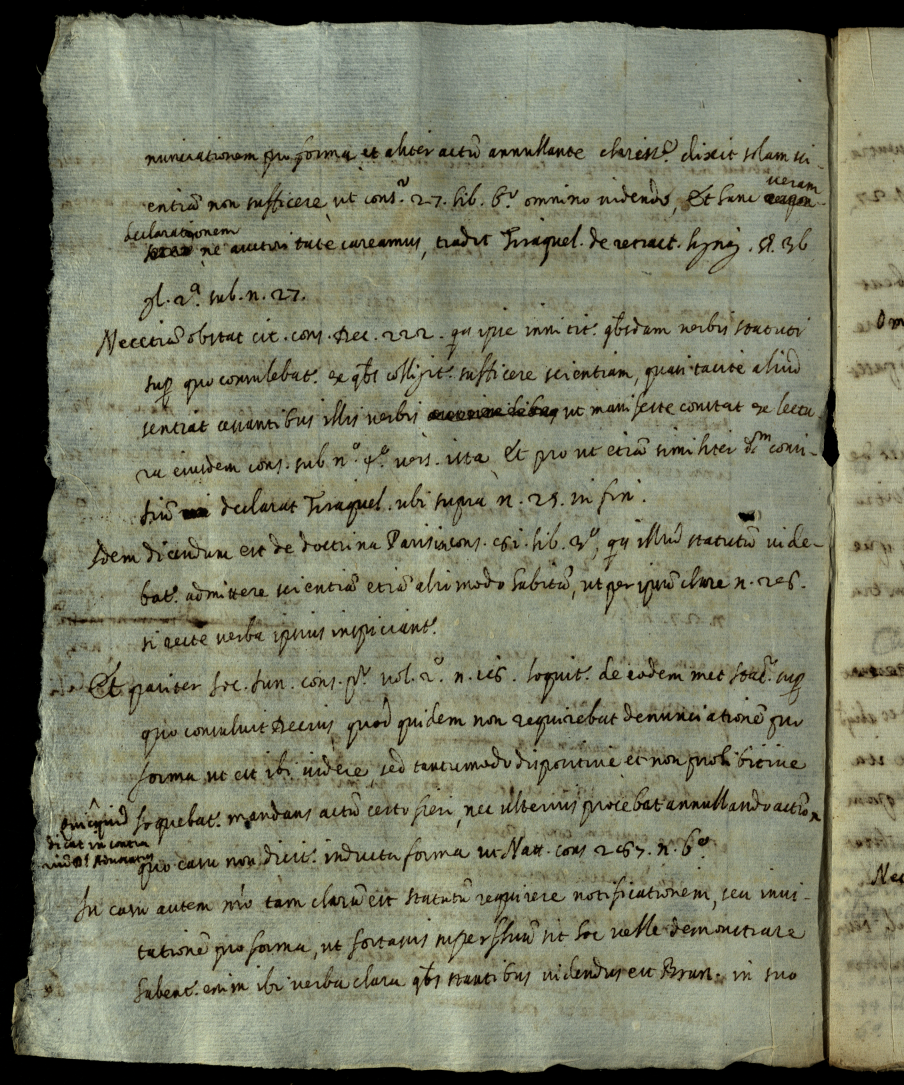 nunciationem pro forma et aliter actũ annullante clariss.e dixit solam sci-
entiã non sufficere ut cons.o 27. lib. 6.o omnino videndo, et hanc veram
declarationem ne auctoritate careamus, tradit Tiraquel. de retract. lignag. §. 36
gl. 2.a sub. n. 27.
Nec etiã obstat cit. cons. Dec. 222. qa ipse innitit.r qbusdam verbis statuti
sup quo consulebat.r ex qbs colligit.r sufficere scientiam, quasi tacite aliud
sentiat cessantibus illis verbis ut manifeste constat ex lectu
ra eiusdem cons. sub n.o 4.o vers. ista et pro ut etiã similiter d.m consi-
liũ declarat Tiraquel. ubi supra n. 29. in fin.
Idem dicendum est de doctrina Paris. in cons. 61. lib. 3.o, qa illud statutũ vide-
bat.r admittere scientiã etiã alio modo habitã, ut per ipsum clare n. 26.
si recte verba ipsius inspiciant.r
Et pariter Soc. Jun. cons. p.o vol. 2.o n. 16. loquit.r de eodem met stat.o sup
quo consuluit Decius, quod quidem non requirebat denunciationẽ pro
forma ut est ibi videre, sed tantummodo dispositive et non prohibitive
loquebat.r mandans actũ certo fieri, nec ulterius procebat annullando actũ
quidquid
dicat in contra
riũ
quo casu non dicit.r inducta forma ut Natt. cons. 267. n. 6.o
In casu autem nro tam clarũ est statutũ requirere notificationem, seu invi-
tationẽ pro forma, ut fortassis superfluũ sit hoc velle demonstrare
habent.r enim ibi verba clara qbs stantibus videndus est Brun. in suo